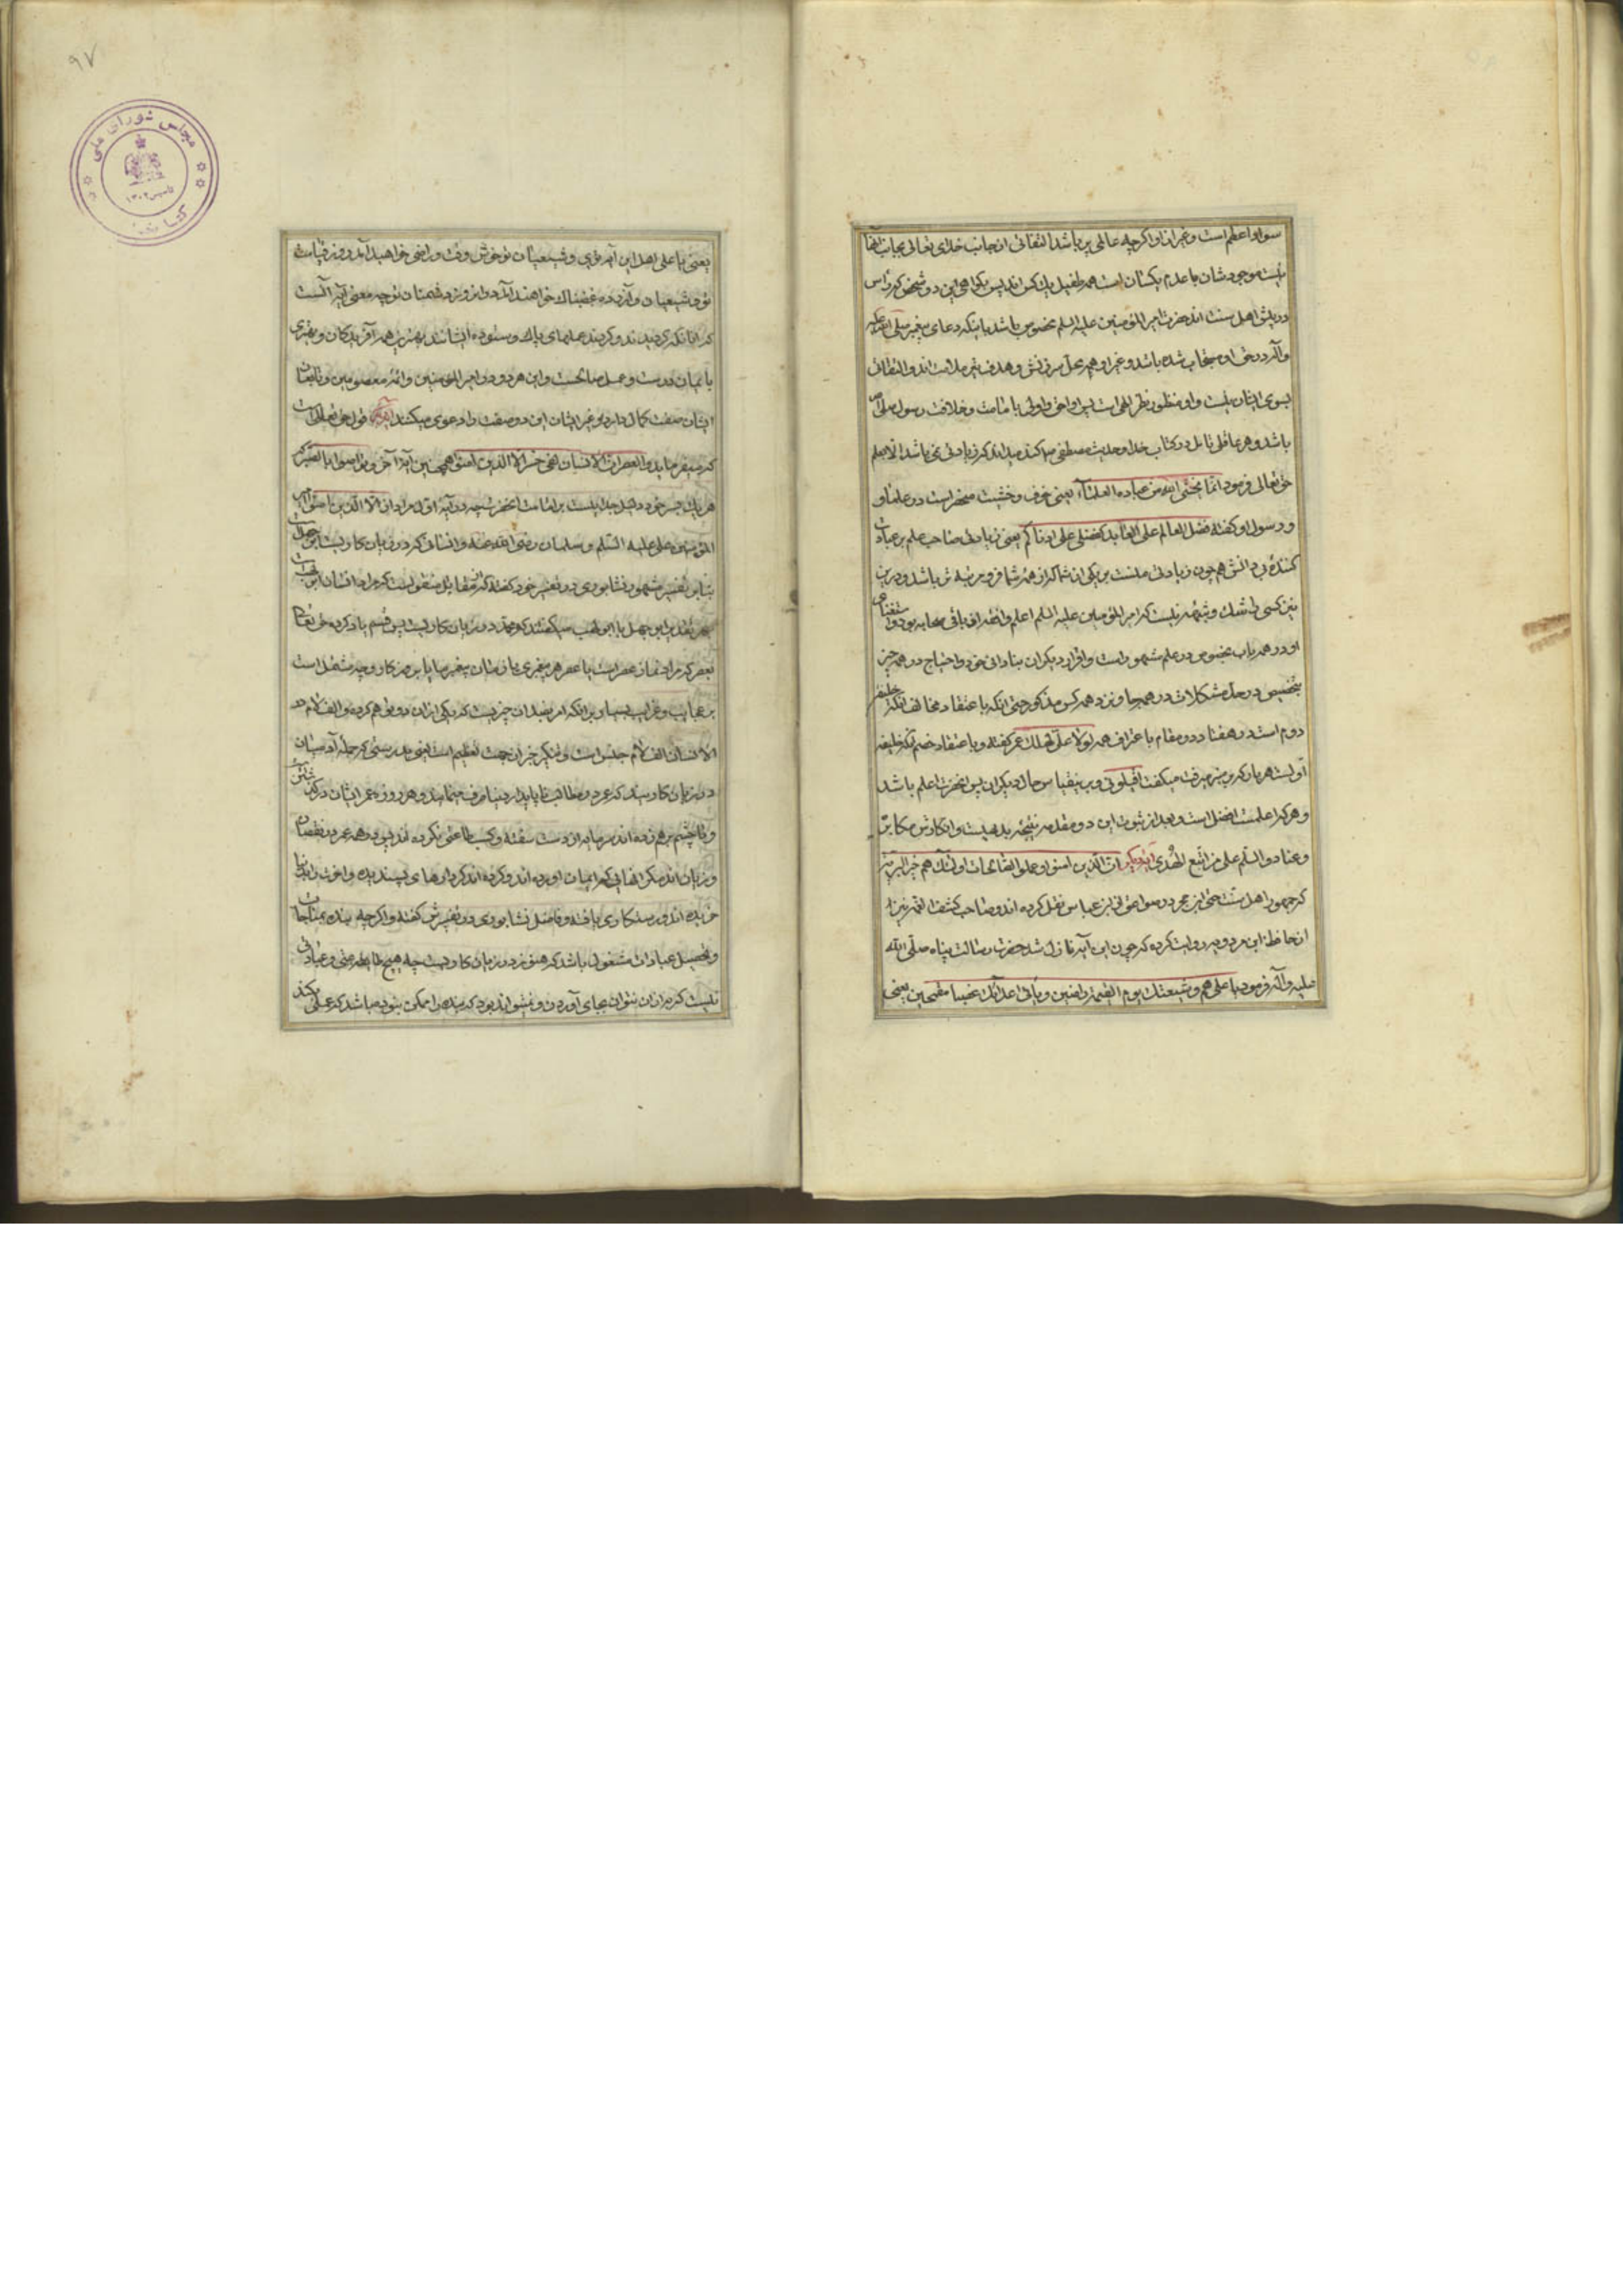 سواو اعلم است و غیر از او اگر چه عالمی پر باشد التفاتی از جانب خدای تعالی بجانب آنها
نیست موجودشان با عدم یکسان است همه طفیل یک کس اند پس یکی ازین دو شخص که
اهل سنت اند حضرت امیر المؤمنین علیه السلم مخصوص باشد باینکه دعای پیغمبر صلی الله علیه
وآله در حق او مستجاب شده باشد و غیر او همه محل سرزنش و هدف تیر ملامت اند و التفات
بسوی ایشان نیست و او منظور نظر الهی است پس او احق و اولی بامامت و خلافت رسول صلی
باشد و هر عاقلی تامل در کتاب خدا و حدیث مصطفی کند میداند که زیادتی نمی باشد الا بعلم
حق تعالی فرمود انما یخشی الله من عباده العلماء یعنی خوف و خشیت منحصر است در علما و
و رسول او گفته فضل العالم علی العابد کفضلی علی ادناکم یعنی زیادتی صاحب علم بر عبادت
کنندهٔ بی دانش همچون زیادتی منست بر یکی از شما که از همه شما فروتر باشد و درین
نیز کسی را شک و شبهه نیست که امیر المؤمنین علیه السلم اعلم و افضل از باقی صحابه بود و استغنای
او در همه باب بخصوص در علم مشهور است و اقرار دیگران بنادانی خود و احتیاج در همه چیز
بتخصیص در حل مشکلات در همه جا و نزد همه کس مذکور حتی آنکه باعتقاد مخالف آنکه خلیفه
دوم است در هفتاد و دو مقام باعتراف همه لولا علی لهلک عمر گفته و باعتقاد خصم آنکه خلیفه
اولست هر بار که بر منبر میرفت میگفت اقیلونی و برینقیاس حال دیگران پس آنحضرت اعلم باشد
و هر که اعلمست افضل است و بعد از ثبوت این دو مقدمه نتیجه بدیهیست و انکارش مکابره
و عناد و السلم علی من اتبع الهدی آیهٔ دیگر ان الذین امنوا و عملوا الصالحات اولئک هم خیر البریة
که جمهور اهل سنت حتی ابن حجر در صواعق از ابن عباس نقل کرده اند و صاحب کشف الغمه نیز
از حافظ ابن مردویه روایت کرده که چون این آیه نازل شد حضرت رسالت پناه صلی الله
علیه وآله فرمود یا علی هم و شیعتک یوم القیمة راضین و یاتی اعدائک غضبا مقمحین یعنی
۹۷
مجلس شورای ملی
یعنی یا علی اهل این آیه توی و شیعیان تو خوش وقت و راضی خواهید آمد روز قیامت
تو و شیعیان و آزرده و غضبناک خواهند آمد در آنروز دشمنان تو چه معنی آیه آنست
که آنانکه گرویدند و کردند عملهای پاک و ستوده ایشانند بهترین همه آفریدگان و بهتری
بایمان درست و عمل صالحست و این هر دو در امیر المؤمنین و ائمه معصومین و تابعان
ایشان صفت کمال دارد و غیر ایشان این دو صفت را دعوی میکنند قول حق تعالی است
که میفرماید والعصر ان الانسان لفی خسر الا الذین امنوا همچنین آیهٔ آخر و تواصوا بالصبر که
هر یک بر امامت آنحضرت چه در آیهٔ اول مراد از الا الذین امنوا امیر
المؤمنین علی علیه السلم و سلمان رضی الله عنه و انسانی که در زیان کاریست ابو جهل
بنابر تفسیر مشهور و نشابوری در تفسیر خود گفته که از مقاتل منقولست که مراد از انسان ابو لهب است
ابو جهل یا ابو لهب میگفتند که محمد در زیان کاریست پس قسم یاد کرده حق تعالی
بعصر که مراد نماز عصر است یا عصر هر پیغمبری یا زمان پیغمبر ما
بر عجایب و غرایب بسیار
الانسان الف لام جنس است و تنکیر خسر از جهت تعظیم است یعنی بدرستی که جملهٔ آدمیان
در زیان کاریند که عمر در مطالب ناپایدار دنیا صرف مینمایند و هر روزه عمر ایشان در
و تا چشم بر هم زده اند سرمایه از دست رفته و کسب طاعتی نکرده اند پس در همه عمر در نقصان
و زیان اند مگر آنهایی که ایمان اورده اند و کرده اند کردارهای پسندیده و آخرت را بدنیا
خریده اند و رستگاری یافته و فاضل نشابوری در تفسیرش گفته و اگر چه بنده بمناجات
و تحصیل عبادات مشغول باشد که هنوز در زیان کاریست چه هیچ طاعتی و عبادتی
نیست که بهتر از آن نتوان بجای آوردن و نمیتواند بود که بنده را ممکن نبوده باشد که عملی بکند